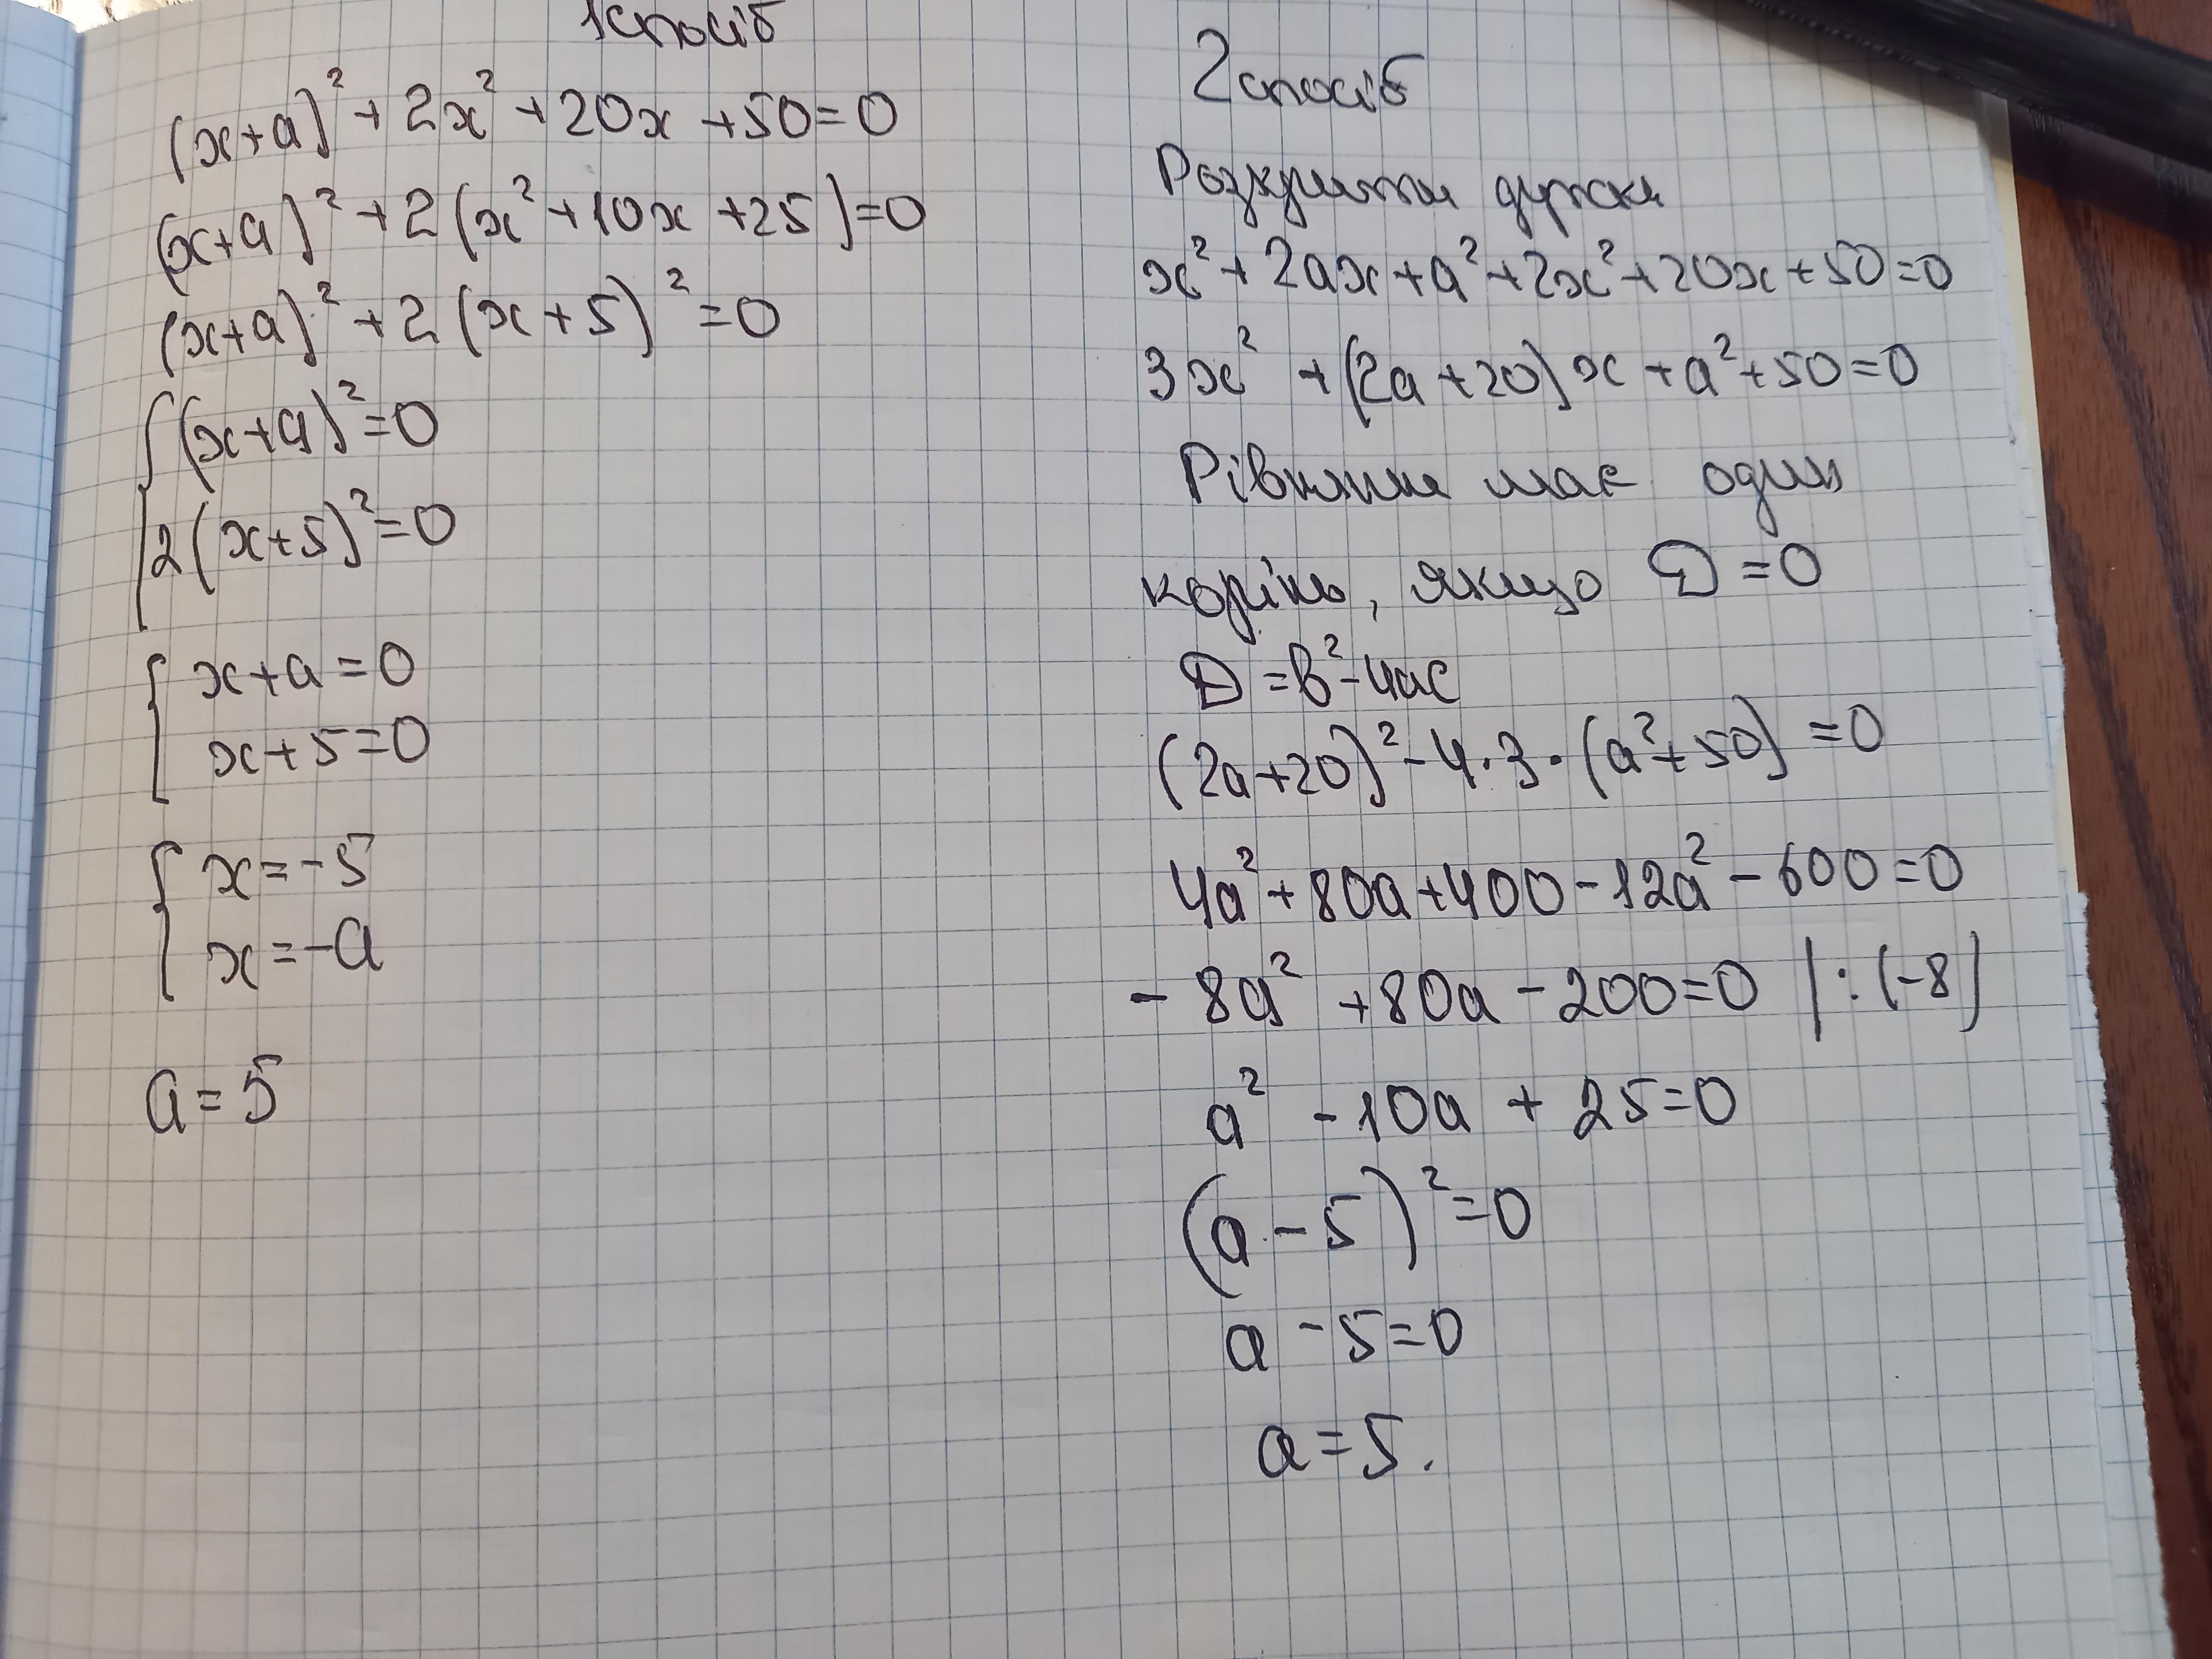 1спосіб
(x+a)²+2x²+20x+50=0
(x+a)²+2(x²+10x+25)=0
(x+a)²+2(x+5)²=0
{(x+a)²=0
2(x+5)²=0
{x+a=0
x+5=0
{x=-5
x=-a
a=5
2спосіб
Розкрити дужки
x²+2ax+a²+2x²+20x+50=0
3x²+(2a+20)x+a²+50=0
Рівняння має один
корінь, якщо D=0
D=b²-4ac
(2a+20)²-4·3·(a²+50)=0
4a²+80a+400-12a²-600=0
-8a²+80a-200=0 |:(-8)
a²-10a+25=0
(a-5)²=0
a-5=0
a=5.